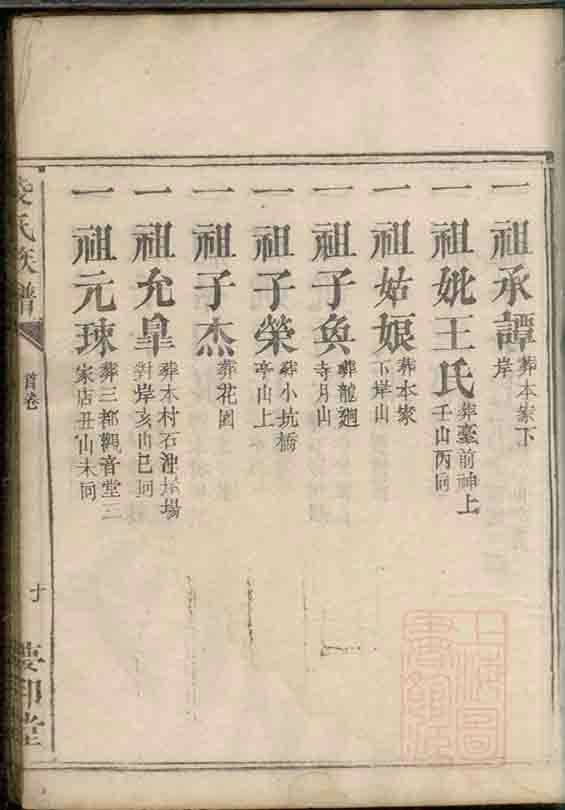 一祖承譚葬本家下岸
一祖妣王氏葬臺前神上壬山丙向
一祖姑娘葬本家下岸山
一祖子奐葬龍廻寺月山
一祖子榮葬小坑橋亭山上
一祖子杰葬花園
一祖允皐葬本村石池塝場對岸亥山巳向
一祖元琜葬三都觀音堂三家店丑山未向
氏族譜
首卷
十
慶卽堂
上海圖書館藏